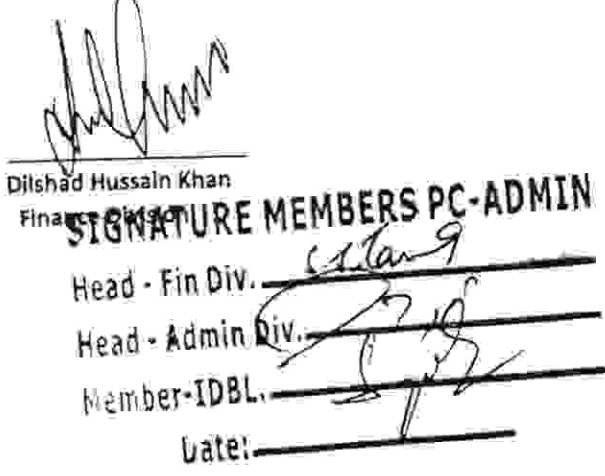 Dilshad Hussain Khan
Finance Division
SIGNATURE MEMBERS PC-ADMIN
Head - Fin Div.
Head - Admin Div.
Member-IDBL.
Date: